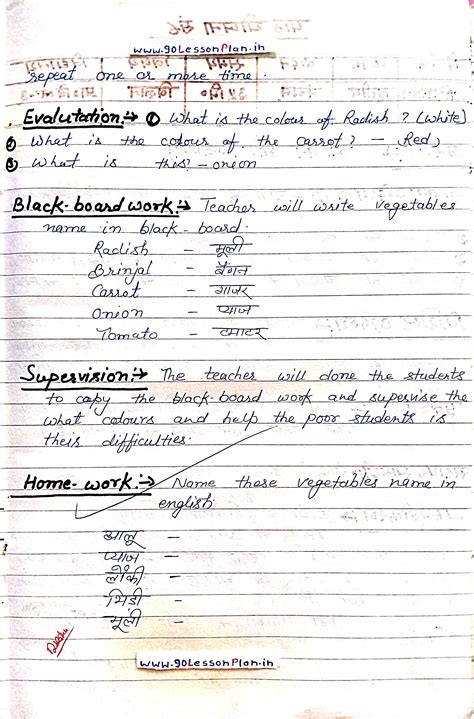 www.90LessonPlan.in
repeat one or more time.
Evalutation:→ ① What is the colour of Radish ? (White)
② What is the colour of the carrot ? – Red)
③ What is this? – onion
Black-board work:→ Teacher will write vegetables
name in black-board.
Radish – मूली
Brinjal – बैंगन
Carrot – गाजर
Onion – प्याज
Tomato – टमाटर
Supervision:→ The teacher will done the students
to copy the black-board work and supervise the
what colours and help the poor students is
their difficulties.
Home-work:→ Name these vegetables name in
english
आलू –
प्याज –
लौकी –
भिंडी –
मूली –
www.90LessonPlan.in